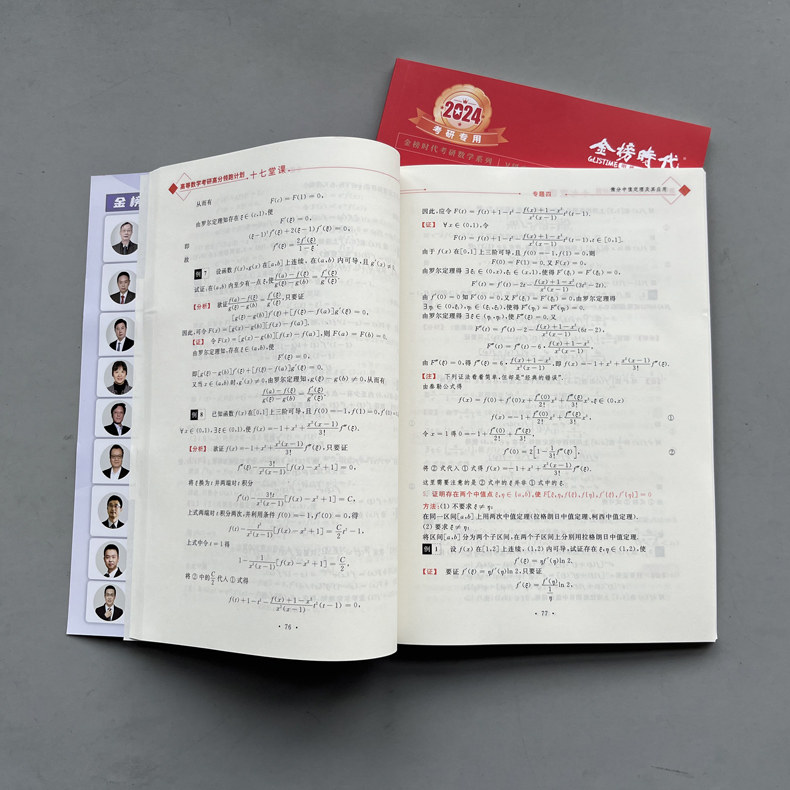 2024
考研专用
金榜时代考研数学系列
金榜時代
GLISTIME
金榜
高等数学考研高分领跑计划 十七堂课
从而有
F(ε)=F(1)=0,
由罗尔定理知存在ξ∈(ε,1),使
F′(ξ)=0,
即
(ξ-1)²f′(ξ)+2(ξ-1)f′(ξ)=0,
故
f″(ξ)=2f′(ξ)/(1-ξ).
例 7 设函数f(x),g(x)在[a,b]上连续,在(a,b)内可导,且g′(x)≠0,
试证,在(a,b)内至少有一点ξ,使(f(a)-f(ξ))/(g(ξ)-g(b))=f′(ξ)/g′(ξ).
【分析】 欲证(f(a)-f(ξ))/(g(ξ)-g(b))=f′(ξ)/g′(ξ),只要证
[g(ξ)-g(b)]f′(ξ)+[f(ξ)-f(a)]g′(ξ)=0,
因此,可令F(x)=[g(x)-g(b)][f(x)-f(a)],
【证】 令F(x)=[g(x)-g(b)][f(x)-f(a)],则F(a)=F(b)=0,
由罗尔定理知,存在ξ∈(a,b),使
F′(ξ)=0,
即[g(ξ)-g(b)]f′(ξ)+[f(ξ)-f(a)]g′(ξ)=0,
又当x∈(a,b)时,g′(x)≠0,由罗尔定理知,g(ξ)-g(b)≠0,从而有
(f(a)-f(ξ))/(g(ξ)-g(b))=f′(ξ)/g′(ξ).
例 8 已知函数f(x)在[0,1]上三阶可导,且f(0)=-1,f(1)=0,f′(0)=0
∀x∈(0,1),∃ξ∈(0,1),使f(x)=-1+x²+x²(x-1)/3! f‴(ξ).
【分析】 欲证f(x)=-1+x²+x²(x-1)/3! f‴(ξ),只要证
f‴(ξ)-3!/(x²(x-1))[f(x)-x²+1]=0,
将ξ换为t并两端对t积分
f″(t)-3!t/(x²(x-1))[f(x)-x²+1]=C,
上式两端对t积分两次,并利用条件f(0)=-1,f′(0)=0,得
f(t)-t³/(x²(x-1))[f(x)-x²+1]=C/2 t²-1,
上式中令t=1得
1-1/(x²(x-1))[f(x)-x²+1]=C/2,
将①中的C/2代入①式得
f(t)+1-t²-(f(x)+1-x²)/(x²(x-1)) t²(t-1)=0,
· 76 ·
专题四
微分中值定理及其应用
因此,应令F(t)=f(t)+1-t²-(f(x)+1-x²)/(x²(x-1)) t²(t-1).
【证】 ∀x∈(0,1),令
F(t)=f(t)+1-t²-(f(x)+1-x²)/(x²(x-1)) t²(t-1),t∈[0,1].
由于f(x)在[0,1]上三阶可导,且f(0)=-1,f(1)=0,则
F(0)=F(1)=0,又F(x)=0.
由罗尔定理得∃ξ₁∈(0,x),ξ₂∈(x,1),使得F′(ξ₁)=F′(ξ₂)=0.
F′(t)=f′(t)-2t-(f(x)+1-x²)/(x²(x-1)) (3t²-2t).
由f′(0)=0知F′(0)=0,又F′(ξ₁)=F′(ξ₂)=0,由罗尔定理得
∃η₁∈(0,ξ₁),η₂∈(ξ₁,ξ₂),使得F″(η₁)=F″(η₂)=0.
由罗尔定理得∃ξ∈(η₁,η₂),使F‴(ξ)=0,又
F″(t)=f″(t)-2-(f(x)+1-x²)/(x²(x-1)) (6t-2),
F‴(t)=f‴(t)-6·(f(x)+1-x²)/(x²(x-1)),
由F‴(ξ)=0,得f‴(ξ)=6·(f(x)+1-x²)/(x²(x-1)),即f(x)=-1+x²+x²(x-1)/3! f‴(ξ).
【注】 下列证法看着简单,但却是“经典的错误”.
由泰勒公式得
f(x)=f(0)+f′(0)x+f″(0)/2! x²+f‴(ξ)/3! x³,ξ∈(0,x)
f(x)=-1+f″(0)/2! x²+f‴(ξ)/3! x³, ①
令x=1得0=-1+f″(0)/2!+f‴(ξ)/3!,
f″(0)=2[1-1/3! f‴(ξ)], ②
将②式代入①式得f(x)=-1+x²+x²(x-1)/3! f‴(ξ).
这里需要注意的是②式中的ξ并非①式中的ξ.
5. 证明存在两个中值点ξ,η∈(a,b),使F[ξ,η,f(ξ),f(η),f′(ξ),f′(η)]=0
方法:(1) 不要求ξ≠η:
在同一区间[a,b]上用两次中值定理(拉格朗日中值定理、柯西中值定理).
(2) 要求ξ≠η:
将区间[a,b]分为两个子区间,在两个子区间上分别用拉格朗日中值定理.
例 1 设f(x)在[1,2]上连续,(1,2)内可导,试证存在ξ,η∈(1,2),使
f′(ξ)=ηf′(η)ln 2.
【证】 要证f′(ξ)=ηf′(η)ln 2,只要证
f′(ξ)=f′(η)/(1/η) ln 2,
· 77 ·